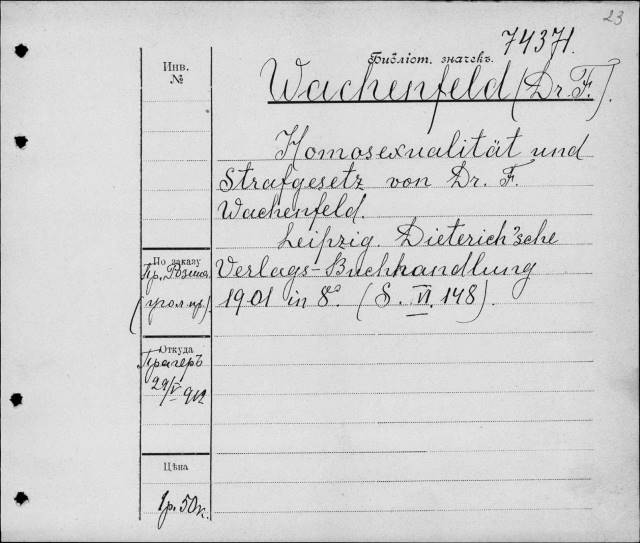 23
74371.
Библіот. значекъ.
Инв.
№
Wachenfeld (Dr. F.).
Homosexualität und
Strafgesetz von Dr. F.
Wachenfeld.
Leipzig. Dieterich'sche
Verlags-Buchhandlung
1901 in 8°. (S. VI. 148).
По заказу
Пр. Розина
(угол. пр.)
Откуда
Прагеръ
29/V 912
Цѣна
1р. 50к.